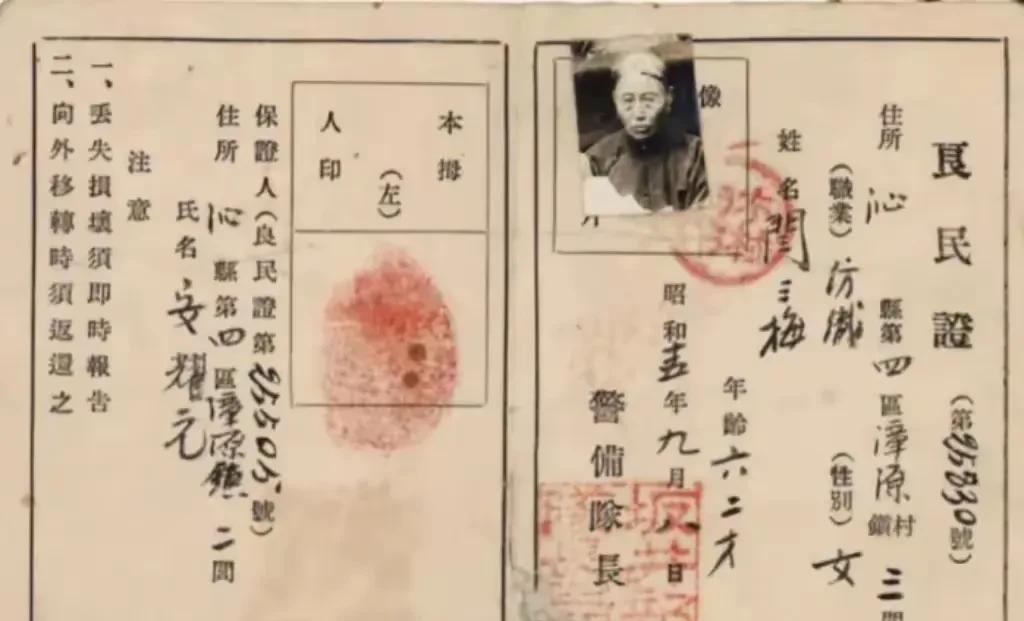 良民證（第25830號）
住所 沁縣第四區漳源鎮村三閭
（職業）紡織（性別）女
姓名 閆三梅 年齡六二才
像片
昭和五年九月八日
警備隊長
本拇（左）人印
保證人（良民證第25505號）
住所 沁縣第四區漳源鎮二閭
氏名 安耀元
注意
一、丟失損壞須即時報告
二、向外移轉時須返還之